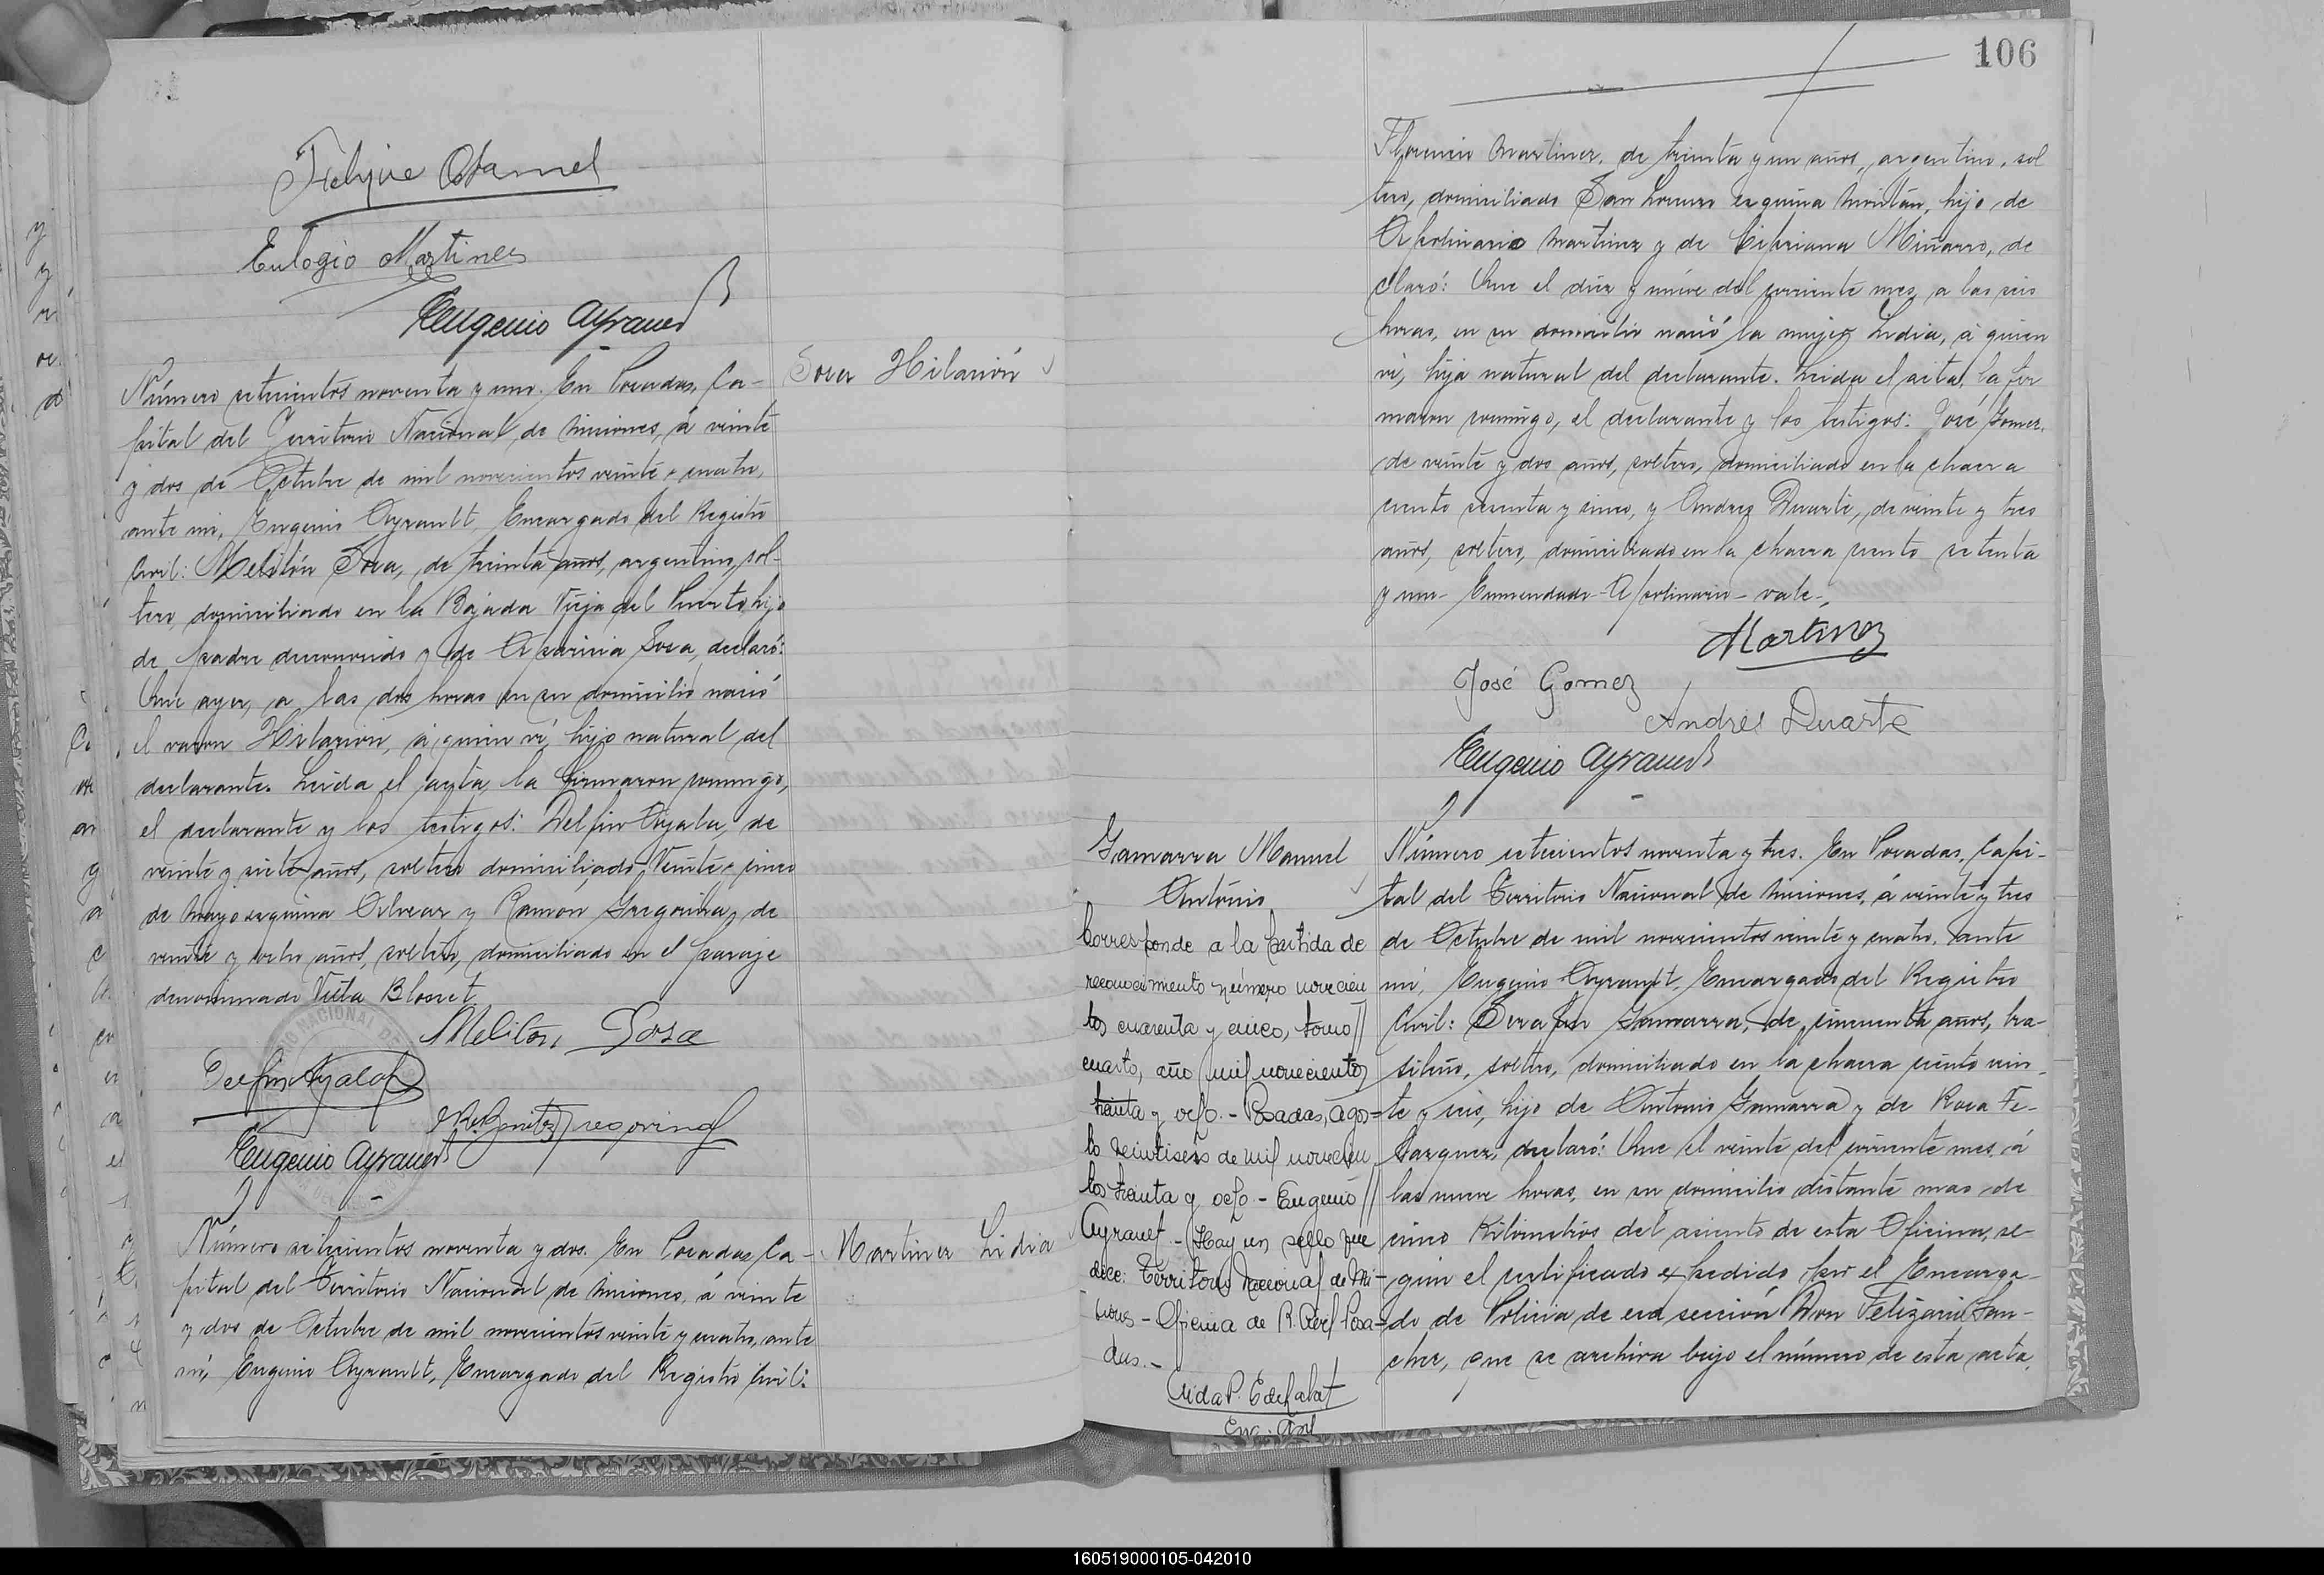 Felipe
Eulogio Martinez
Eugenio Ayrault
Sosa Hilarión
Número setecientos noventa y uno. En Posadas, Ca-
pital del Territorio Nacional de Misiones, á veinte
y dos de Octubre de mil novecientos veinte y cuatro,
ante mi, Eugenio Ayrault, Encargado del Registro
Civil: Melitón Sosa, de treinta años, argentino, sol-
tero, domiciliado en la Bajada Vieja del Puerto, hijo
de padre desconocido y de Aparicia Sosa, declaró:
Que ayer, a las dos horas en su domicilio nació
el varon Hilarión, á quien ví, hijo natural del
declarante. Leida el acta, la firmaron conmigo,
el declarante y los testigos: Delfin Ayala, de
veinte y siete años, soltero domiciliado Veinte y cinco
de Mayo esquina Alvear y Ramon Gregorina, de
veinte y ocho años, soltero, domiciliado en el paraje
denominado Villa Blosset
Meliton Sosa
Delfin Ayala
Eugenio Ayrault
Martinez Lidia
Número setecientos noventa y dos. En Posadas, Ca-
pital del Territorio Nacional de Misiones, á veinte
y dos de Octubre de mil novecientos veinte y cuatro, ante
mí, Eugenio Ayrault, Encargado del Registro Civil:
106
Florencio Martinez, de treinta y un años, argentino, sol
tero, domiciliado San Lorenzo esquina Montán, hijo de
Apolinario Martinez y de Cipriana Miñarro, de
claró: Que el diez y nueve del corriente mes, a las seis
horas, en su domicilio nació la mujer Lidia, á quien
ví, hija natural del declarante. Leida el acta, la fir
maron conmigo, el declarante y los testigos: José Gomez,
de veinte y dos años, soltero, domiciliado en la chacra
ciento sesenta y cinco, y Andrez Duarte, de veinte y tres
años, soltero, domiciliado en la chacra ciento setenta
y una - Enmendado - Apolinario - vale -,
Martinez
José Gomez
Andrés Duarte
Eugenio Ayrault
Gamarra Manuel
Antonio
Corresponde a la partida de
reconocimiento número novecien
tos cuarenta y cinco, tomo //
cuarto, año mil novecientos
treinta y ocho. - Posadas, Agos=
to veintiseis de mil novecien
tos treinta y ocho - Eugenio //
Ayrault - Hay un sello que
dice: Territorio Nacional de Mi-
siones - Oficina de R. Civil Posa-
das. -
Número setecientos noventa y tres. En Posadas, Capi-
tal del Territorio Nacional de Misiones, á veinte y tres
de Octubre de mil novecientos veinte y cuatro, ante
mí, Eugenio Ayrault, Encargado del Registro
Civil: Serafin Gamarra, de cincuenta años, bra-
sileño, soltero, domiciliado en la chacra ciento vein-
te y seis, hijo de Antonio Gamarra y de Rosa Ve-
lazquez, declaró: Que el veinte del corriente mes, á
las nueve horas, en su domicilio distante mas de
cinco Kilometros del asiento de esta Oficina, se-
gún el certificado expedido por el Encarga-
do de Policia de esa sección Don Felizario San-
chez, que se archiva bajo el número de esta acta,
160519000105-042010